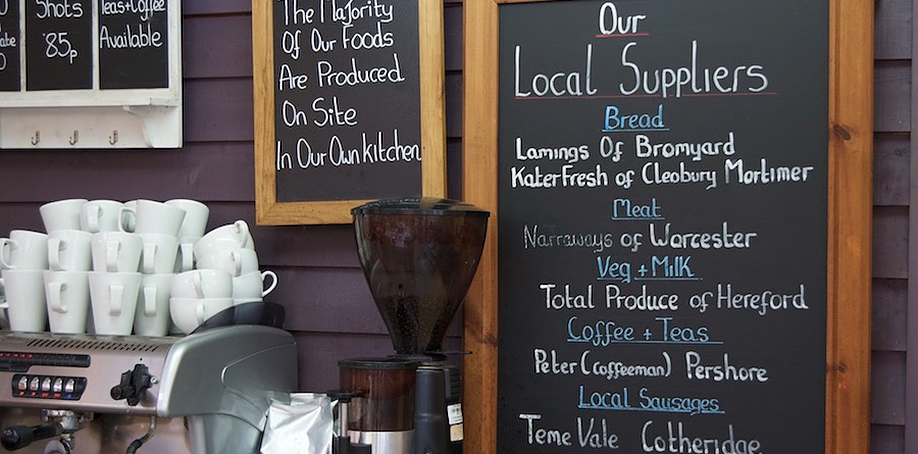 Shots
85p
Teas+Coffee
Available
The Majority
Of Our Foods
Are Produced
On Site
In Our Own kitchen
Our
Local Suppliers
Bread
Lamings Of Bromyard
KaterFresh of Cleobury Mortimer
Meat
Narraways of Worcester
Veg + Milk
Total Produce of Hereford
Coffee + Teas
Peter (coffeeman) Pershore
Local Sausages
Teme Vale Cotheridge